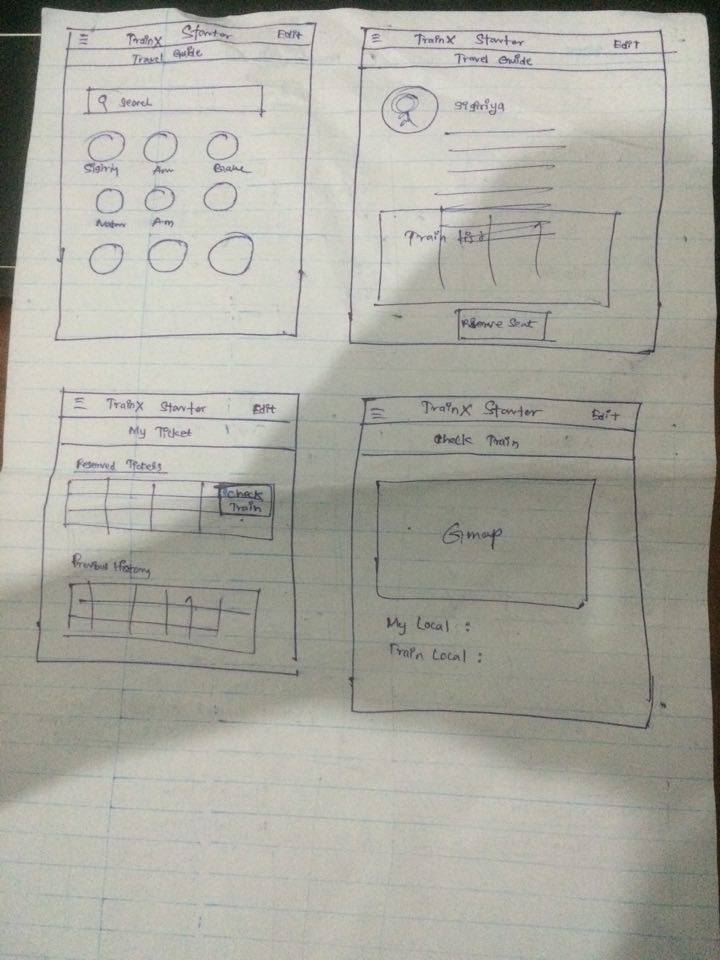 TrainX Starter Edit
Travel Guide
Search
TrainX Starter Edit
Travel Guide
Sigiriya
Train list
Reserve Seat
TrainX Starter Edit
My Ticket
Reserved Tickets
Check
Train
Previous History
TrainX Starter Edit
Check Train
Gmap
My Local :
Train Local :